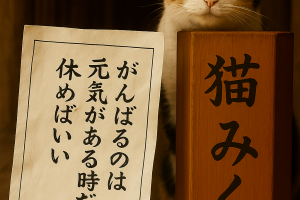 がんばるのは
元気がある時だ
休めばいい
猫みく